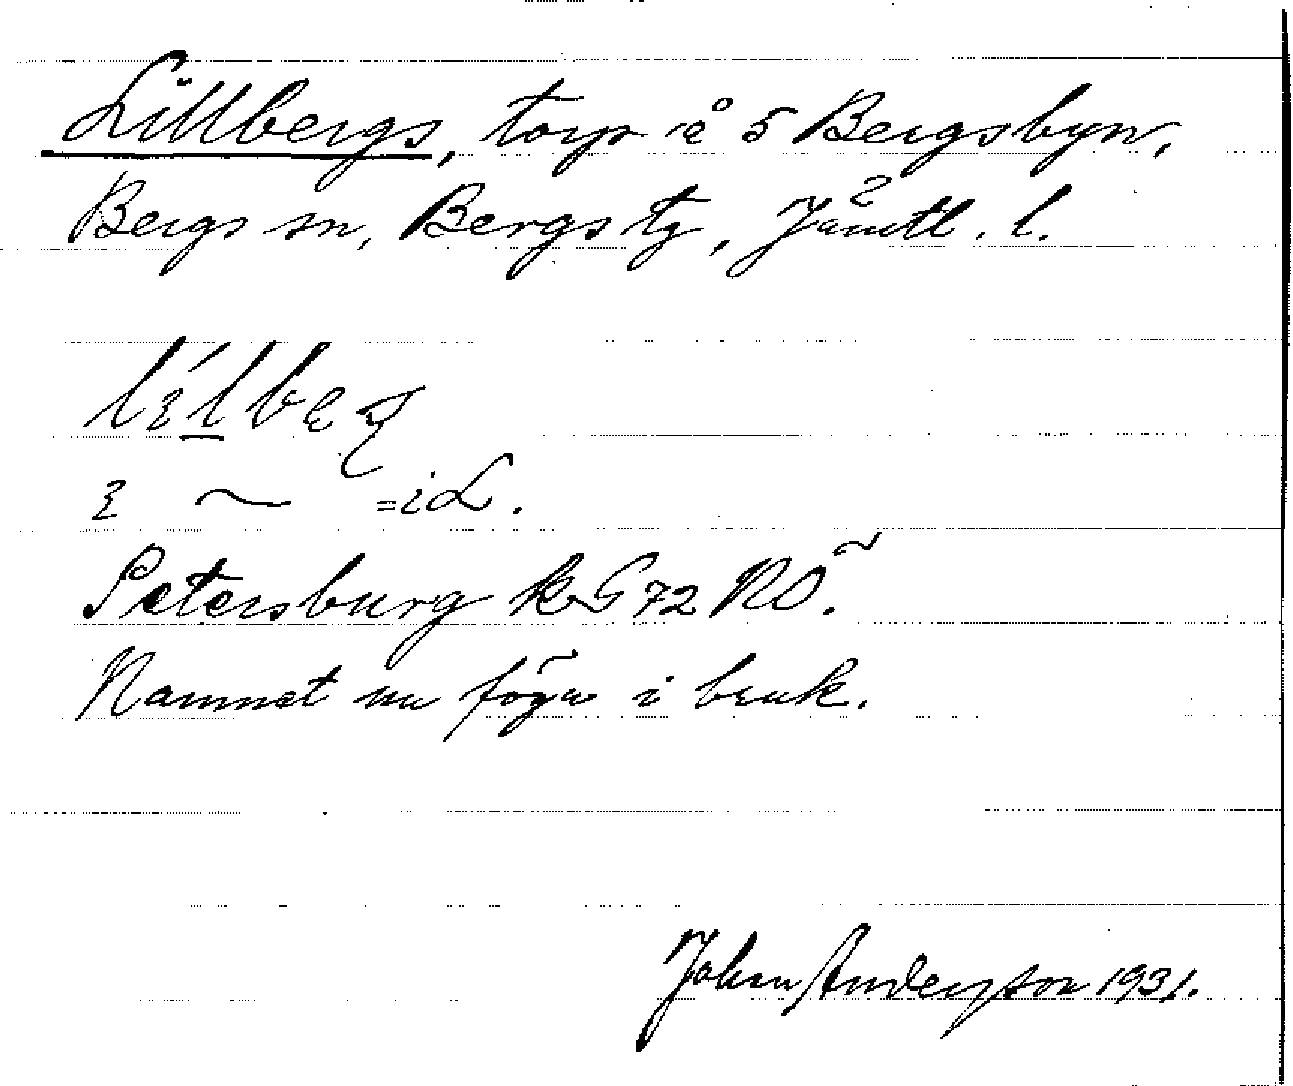 Lillbergs, torp å 5 Bergsbyn,
Bergs sn, Bergs tg, Jämtl. l.
= i L.
Petersburg k G 72 NÖ.
Namnet nu föga i bruk.
John Anderson 1931.